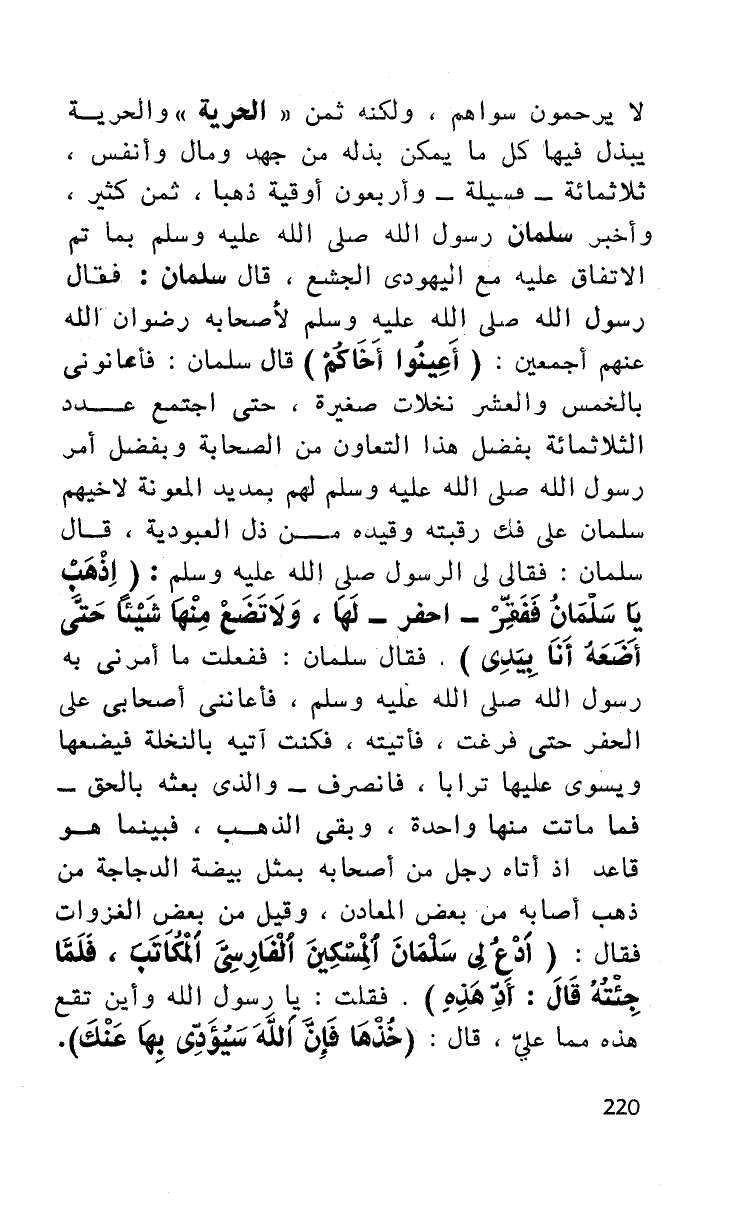 لا يرحمون سواهم ، ولكنه ثمن « الحرية » والحريــة
يبذل فيها كل ما يمكن بذله من جهد ومال وأنفس ،
ثلاثمائة – فسيلة – وأربعون أوقية ذهبا ، ثمن كثير ،
وأخبر سلمان رسول الله صلى الله عليه وسلم بما تم
الاتفاق عليه مع اليهودى الجشع ، قال سلمان : فقــال
رسول الله صلى الله عليه وسلم لأصحابه رضوان الله
عنهم أجمعين : ( أَعِينُوا أَخَاكُمْ ) قال سلمان : فأعانونى
بالخمس والعشر نخلات صغيرة ، حتى اجتمع عــــدد
الثلاثمائة بفضل هذا التعاون من الصحابة وبفضل أمر
رسول الله صلى الله عليه وسلم لهم بمديد المعونة لاخيهم
سلمان على فك رقبته وقيده مــــن ذل العبودية ، قــال
سلمان : فقالى لى الرسول صلى الله عليه وسلم : ( اِذْهَبْ
يَا سَلْمَانُ فَفَقِّرْ – احفر – لَهَا ، وَلَاتَضَعْ مِنْهَا شَيْئًا حَتَّى
أَضَعَهُ أَنَا بِيَدِى ) . فقال سلمان : ففعلت ما أمرنى به
رسول الله صلى الله عليه وسلم ، فأعاننى أصحابى على
الحفر حتى فرغت ، فأتيته ، فكنت آتيه بالنخلة فيضعها
ويسوى عليها ترابا ، فانصرف – والذى بعثه بالحق –
فما ماتت منها واحدة ، وبقى الذهــب ، فبينما هــو
قاعد اذ أتاه رجل من أصحابه بمثل بيضة الدجاجة من
ذهب أصابه من بعض المعادن ، وقيل من بعض الغزوات
فقال : ( اُدْعُ لِى سَلْمَانَ اَلْمِسْكِينَ اَلْفَارِسِيَّ اَلْمُكَاتَبَ ، فَلَمَّا
جِئْتُهُ قَالَ : أَدِّ هَذِهِ ) . فقلت : يا رسول الله وأين تقع
هذه مما علىّ ، قال : (خُذْهَا فَإِنَّ اَللَّهَ سَيُؤَدِّى بِهَا عَنْكَ).
220